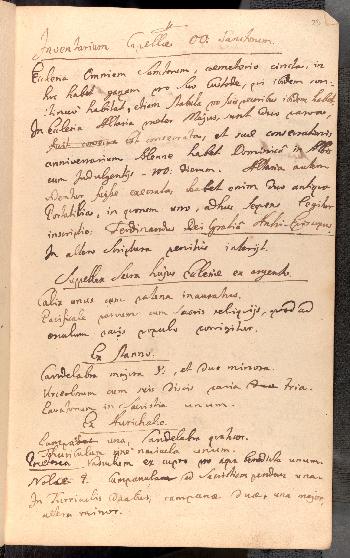 Inventarium Capellæ OO: Sanctorum.
Ecclesia Omnium Sanctorum, cæmeterio cincta, in
hoc habet pagum pro suo Custode, qui ibidem con-
tinuo habitat, etiam stabula pro suis pecoribus ibidem habet.
In Ecclesia Altaria præter Majus, sunt Duo parva,
est consecrata, et suæ consecrationis
anniversarium solenne habet Dominicâ in Albis
cum Indulgentijs 100: dierum. Altaria autem
videntur execrata, habet enim Duo antiqua
Portatilia, in quorum uno, adhuc Legitur
inscriptio: Ferdinandus Dei Gratiâ Archi-Episcopus.
In altero Scriptura penitus interijt.
Suppellex Sacra hujus Ecclesiæ ex argento.
Calix unus cum patena inauratus.
Pacificale parvum cum sacris reliquijs, quod ad
osculum pacis populo porrigitur.
Ex Stanno.
Candelabra majora et duo minora.
Urceolorum cum suis discis paria tria.
Lavatorium in Sacristia unum.
Ex Aurichalco.
una, Candelabra quatuor.
Thuribulum cum navicula unum.
Vasculum ex cupro pro aqua benedicta unum.
Nolæ 4. Campanula ad Sacristiam pendens una.
In Turriculis Duabus, campanæ duæ, una major,
altera minor.